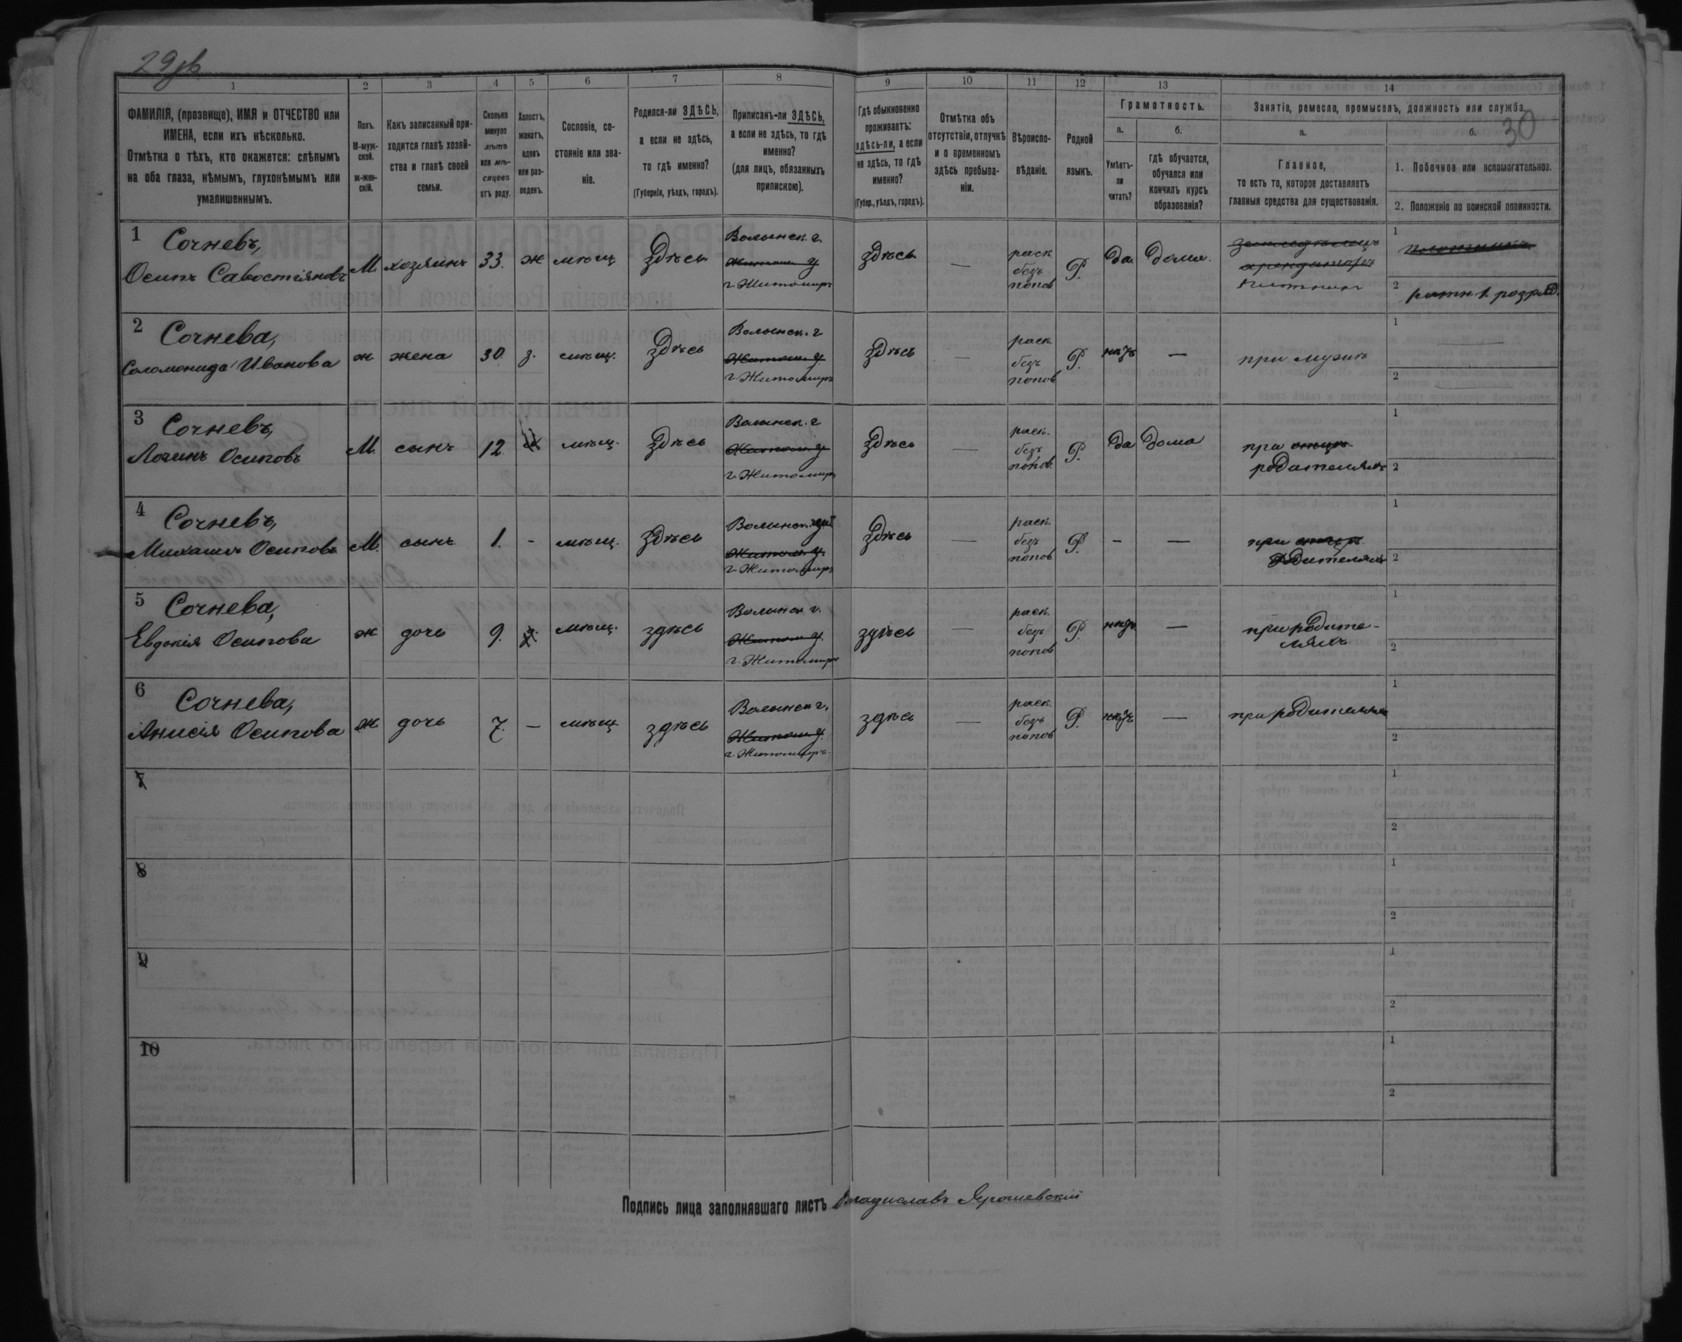 29об
30
1 2 3 4 5 6 7 8 9 10 11 12 13 14
ФАМИЛІЯ, (прозвище), ИМЯ и ОТЧЕСТВО или
ИМЕНА, если ихъ нѣсколько.
Отмѣтка о тѣхъ, кто окажется: слѣпымъ
на оба глаза, нѣмымъ, глухонѣмымъ или
умалишеннымъ.
Полъ.
М-муж-
ской.
ж-жен-
скій.
Какъ записанный при-
ходится главѣ хозяй-
ства и главѣ своей
семьи.
Сколько
минуло
лѣтъ
или мѣ-
сяцевъ
отъ роду.
Холостъ,
женатъ,
вдовъ
или раз-
веденъ.
Сословіе, со-
стояніе или зва-
ніе.
Родился-ли ЗДѢСЬ,
а если не здѣсь,
то гдѣ именно?
(Губернія, уѣздъ, городъ).
Приписанъ-ли ЗДѢСЬ,
а если не здѣсь, то гдѣ
именно?
(для лицъ, обязанныхъ
припискою).
Гдѣ обыкновенно
проживаетъ:
здѣсь-ли, а если
не здѣсь, то гдѣ
именно?
(Губер., уѣздъ, городъ).
Отмѣтка объ
отсутствіи, отлучкѣ
и о временномъ
здѣсь пребыва-
ніи.
Вѣроиспо-
вѣданіе.
Родной
языкъ.
Грамотность.
а.
Умѣетъ-
ли
читать?
б.
гдѣ обучается,
обучался или
кончилъ курсъ
образованія?
Занятіе, ремесло, промыселъ, должность или служба.
а.
Главное,
то есть то, которое доставляетъ
главныя средства для существованія.
б.
1. Побочное или вспомогательное.
2. Положеніе по воинской повинности.
1 Сочневъ,
Осипъ Савостіяновъ
М хозяинъ 33. ж мѣщ. Здѣсь
Волынск. г.
г. Житомиръ
здѣсь —
раск
безъ
попов
Р. да дома.
1
2 ратн. 1 розряд.
2 Сочнева,
Соломонида Иванова
ж жена 30 з. мѣщ. здѣсь
Волынск. г
г. Житомиръ
здѣсь —
раск
безъ
попов
Р. нѣтъ — при мужѣ
1
2
3 Сочневъ,
Логинъ Осиповъ
М. сынъ 12. мѣщ. здѣсь
Волынск. г
г. Житомиръ
здѣсь —
раск.
безъ
попов
Р. да дома
при отцѣ
родителяхъ
1
2
4 Сочневъ,
Михаилъ Осиповъ
М. сынъ 1. - мѣщ. здѣсь
Волынск.
г. Житомиръ
здѣсь —
раск.
безъ
попов
Р. - —
при отцѣ
родителяхъ
1
2
5 Сочнева,
Евдокія Осипова
ж дочь 9. мѣщ. здѣсь
Волынск г.
г. Житомиръ
здѣсь —
раск.
безъ
попов
Р. нѣтъ —
при родите-
ляхъ
1
2
6 Сочнева,
Анисія Осипова
ж дочь 7. — мѣщ здѣсь
Волынск г.
г. Житомиръ
здѣсь —
раск.
безъ
попов
Р. нѣтъ — при родителяхъ
1
2
7
1
2
8
1
2
9
1
2
10
1
2
Подпись лица заполнявшаго листъ Владиславъ Ярошевскій